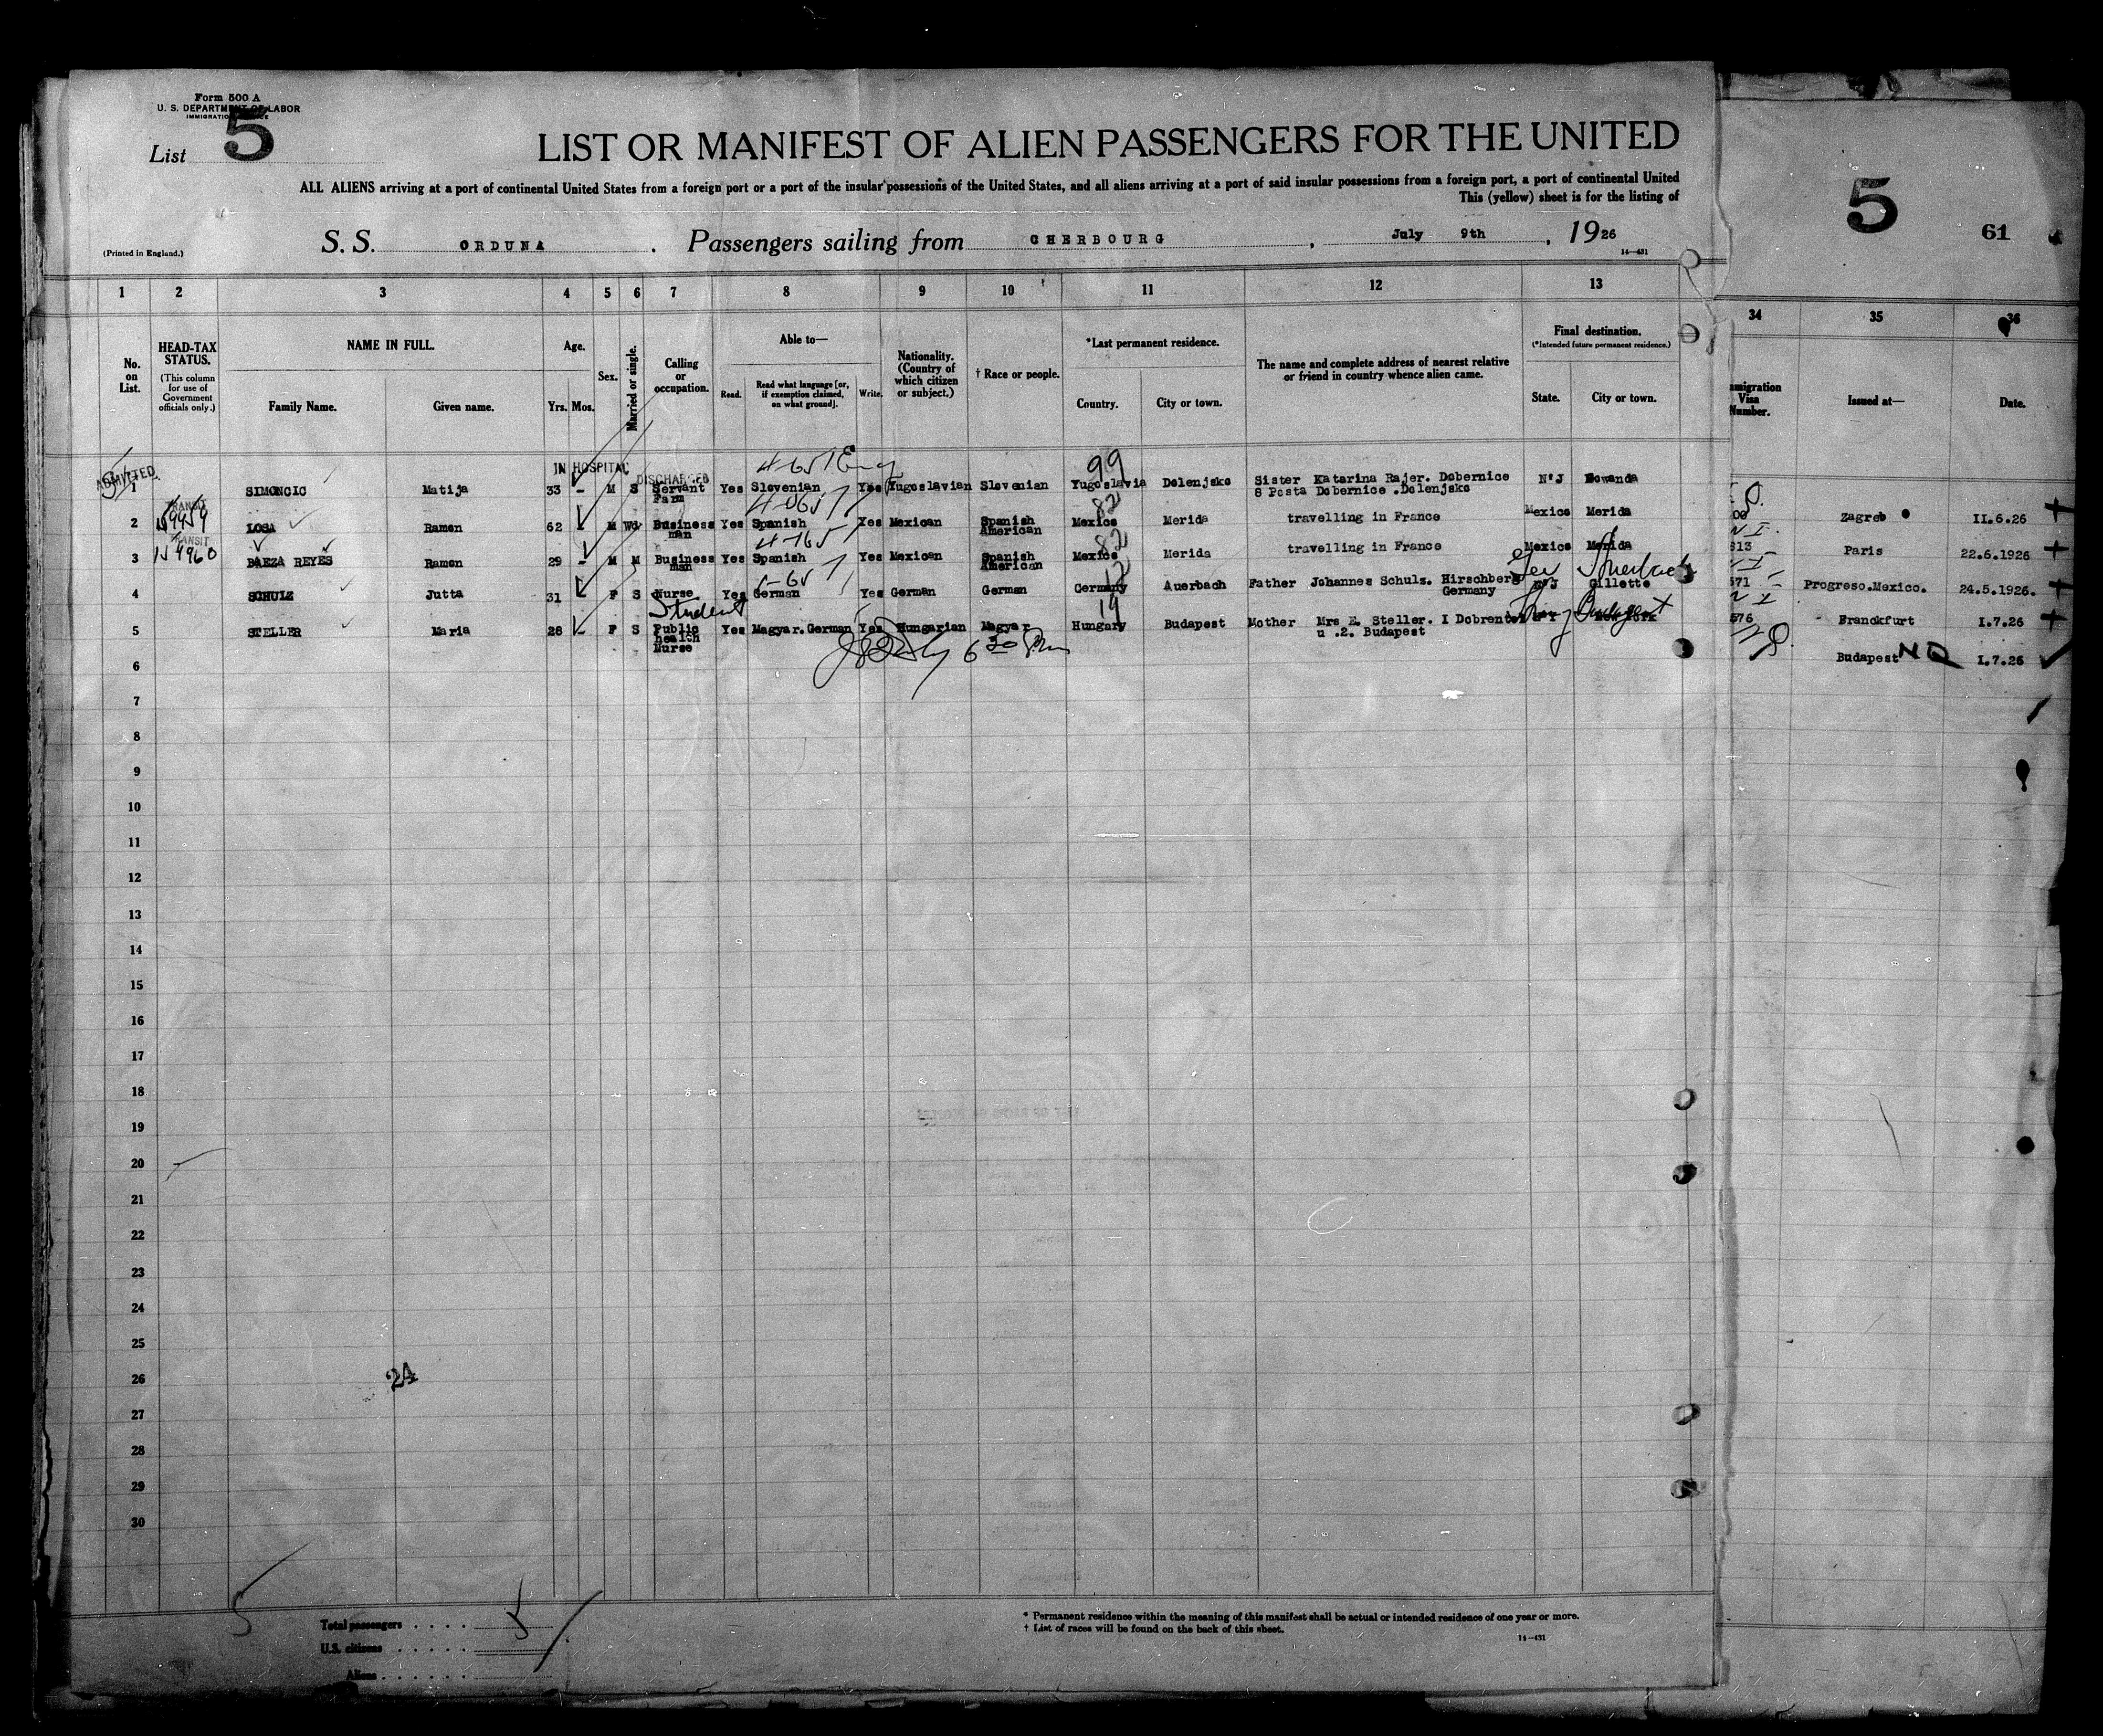 Form 500 A
U. S. DEPARTMENT OF LABOR
IMMIGRATION SERVICE
List 5
LIST OR MANIFEST OF ALIEN PASSENGERS FOR THE UNITED
ALL ALIENS arriving at a port of continental United States from a foreign port or a port of the insular possessions of the United States, and all aliens arriving at a port of said insular possessions from a foreign port, a port of continental United
This (yellow) sheet is for the listing of
5
61
(Printed in England.)
S. S. ORDUNA . Passengers sailing from CHERBOURG , July 9th , 1926
14—431
1 2 3 4 5 6 7 8 9 10 11 12 13
34 35 36
No. on List.
HEAD-TAX STATUS.
(This column for use of Government officials only.)
NAME IN FULL.
Family Name. Given name.
Age.
Yrs. Mos.
Sex.
Married or single.
Calling or occupation.
Able to—
Read. Read what language [or, if exemption claimed, on what ground]. Write.
Nationality. (Country of which citizen or subject.)
† Race or people.
*Last permanent residence.
Country. City or town.
The name and complete address of nearest relative or friend in country whence alien came.
Final destination.
(*Intended future permanent residence.)
State. City or town.
migration Visa Number.
Issued at—
Date.
ADMITTED
IN HOSPITAL
DISCHARGED
99
1 SIMONCIC Matija 33 - M S Servant Farm Yes Slovenian Yes Yugoslavian Slovenian Yugoslavia Dolenjsko Sister Katarina Rajer. Dobernice N.J
8 Posta Dobernice .Dolenjsko
TRANSIT
82
2 LOSA Ramon 62 - M Wd Business man Yes Spanish Yes Mexican Spanish American Mexico Merida travelling in France Mexico Merida
Zagreb 11.6.26
TRANSIT
154960
82
3 BAEZA REYES Ramon 29 - M M Business man Yes Spanish Yes Mexican Spanish American Mexico Merida travelling in France Mexico Merida
313 Paris 22.6.1926
12
4 SCHULZ Jutta 31 F S Nurse Yes German Yes German German Germany Auerbach Father Johannes Schulz. Hirschberg Germany N.J Gillette
571 Progreso.Mexico. 24.5.1926.
Student
19
5 STELLER Maria 28 - F S Public health Nurse Yes Magyar.German Yes Hungarian Magyar Hungary Budapest Mother Mrs E. Steller. I Dobrente
u .2. Budapest
576 Franckfurt 1.7.26
6
Budapest 1.7.26
7
8
9
10
11
12
13
14
15
16
17
18
19
20
21
22
23
24
25
26
24
27
28
29
30
Total passengers . . . .
U.S. citizens . . . . . .
Aliens . . . . . .
* Permanent residence within the meaning of this manifest shall be actual or intended residence of one year or more.
† List of races will be found on the back of this sheet.
14—431